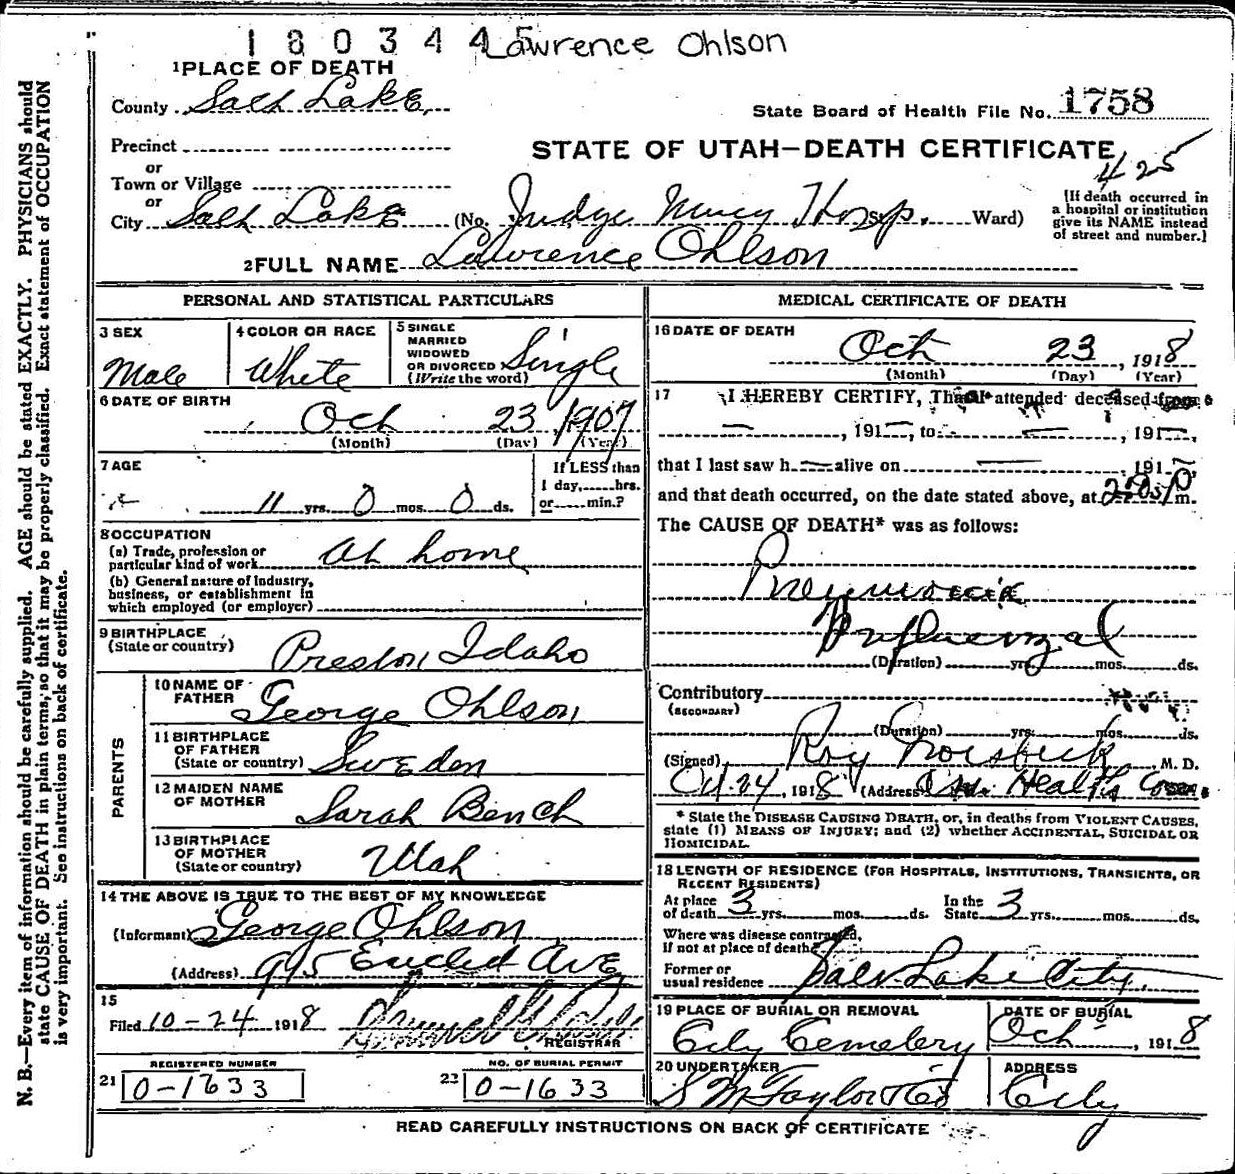 1803445 Lawrence Ohlson
1 PLACE OF DEATH
County Salt Lake
State Board of Health File No. 1758
Precinct
STATE OF UTAH—DEATH CERTIFICATE
or
425
Town or Village
or
City Salt Lake (No. Judge Mercy Hosp. St., Ward)
[If death occurred in
a hospital or institution
give its NAME instead
of street and number.]
2 FULL NAME Lawrence Ohlson
PERSONAL AND STATISTICAL PARTICULARS
3 SEX
Male
4 COLOR OR RACE
White
5 SINGLE
MARRIED
WIDOWED
OR DIVORCED
(Write the word)
Single
6 DATE OF BIRTH
Oct 23, 1907
(Month) (Day) (Year)
7 AGE
11 yrs. 0 mos. 0 ds.
If LESS than
1 day, hrs.
or min.?
8 OCCUPATION
(a) Trade, profession or
particular kind of work
At home
(b) General nature of industry,
business, or establishment in
which employed (or employer)
9 BIRTHPLACE
(State or country)
Preston Idaho
PARENTS
10 NAME OF
FATHER
George Ohlson
11 BIRTHPLACE
OF FATHER
(State or country)
Sweden
12 MAIDEN NAME
OF MOTHER
Sarah Bench
13 BIRTHPLACE
OF MOTHER
(State or country)
Utah
14 THE ABOVE IS TRUE TO THE BEST OF MY KNOWLEDGE
(Informant) George Ohlson
(Address) 995 Euclid Ave
15
Filed 10-24 1918
REGISTRAR
REGISTERED NUMBER
21 0-1633
NO. OF BURIAL PERMIT
22 0-1633
MEDICAL CERTIFICATE OF DEATH
16 DATE OF DEATH
Oct 23, 1918
(Month) (Day) (Year)
17 I HEREBY CERTIFY, That I attended deceased from
, 191 , to , 191 ,
that I last saw h alive on , 191 ,
and that death occurred, on the date stated above, at m.
The CAUSE OF DEATH* was as follows:
Pneumonia
Influenzal
(Duration) yrs. mos. ds.
Contributory
(SECONDARY)
(Duration) yrs. mos. ds.
(Signed) Roy , M. D.
Oct. 24, 1918 (Address) Health
* State the DISEASE CAUSING DEATH, or, in deaths from VIOLENT CAUSES,
state (1) MEANS OF INJURY; and (2) whether ACCIDENTAL, SUICIDAL OR
HOMICIDAL.
18 LENGTH OF RESIDENCE (FOR HOSPITALS, INSTITUTIONS, TRANSIENTS, OR
RECENT RESIDENTS)
At place
of death 3 yrs. mos. ds.
In the
State 3 yrs. mos. ds.
Where was disease contracted,
if not at place of death?
Former or
usual residence Salt Lake City
19 PLACE OF BURIAL OR REMOVAL
City Cemetery
DATE OF BURIAL
Oct , 1918
20 UNDERTAKER
S M Taylor & Co
ADDRESS
City
READ CAREFULLY INSTRUCTIONS ON BACK OF CERTIFICATE
N. B.—Every item of information should be carefully supplied. AGE should be stated EXACTLY. PHYSICIANS should
state CAUSE OF DEATH in plain terms, so that it may be properly classified. Exact statement of OCCUPATION
is very important. See instructions on back of certificate.